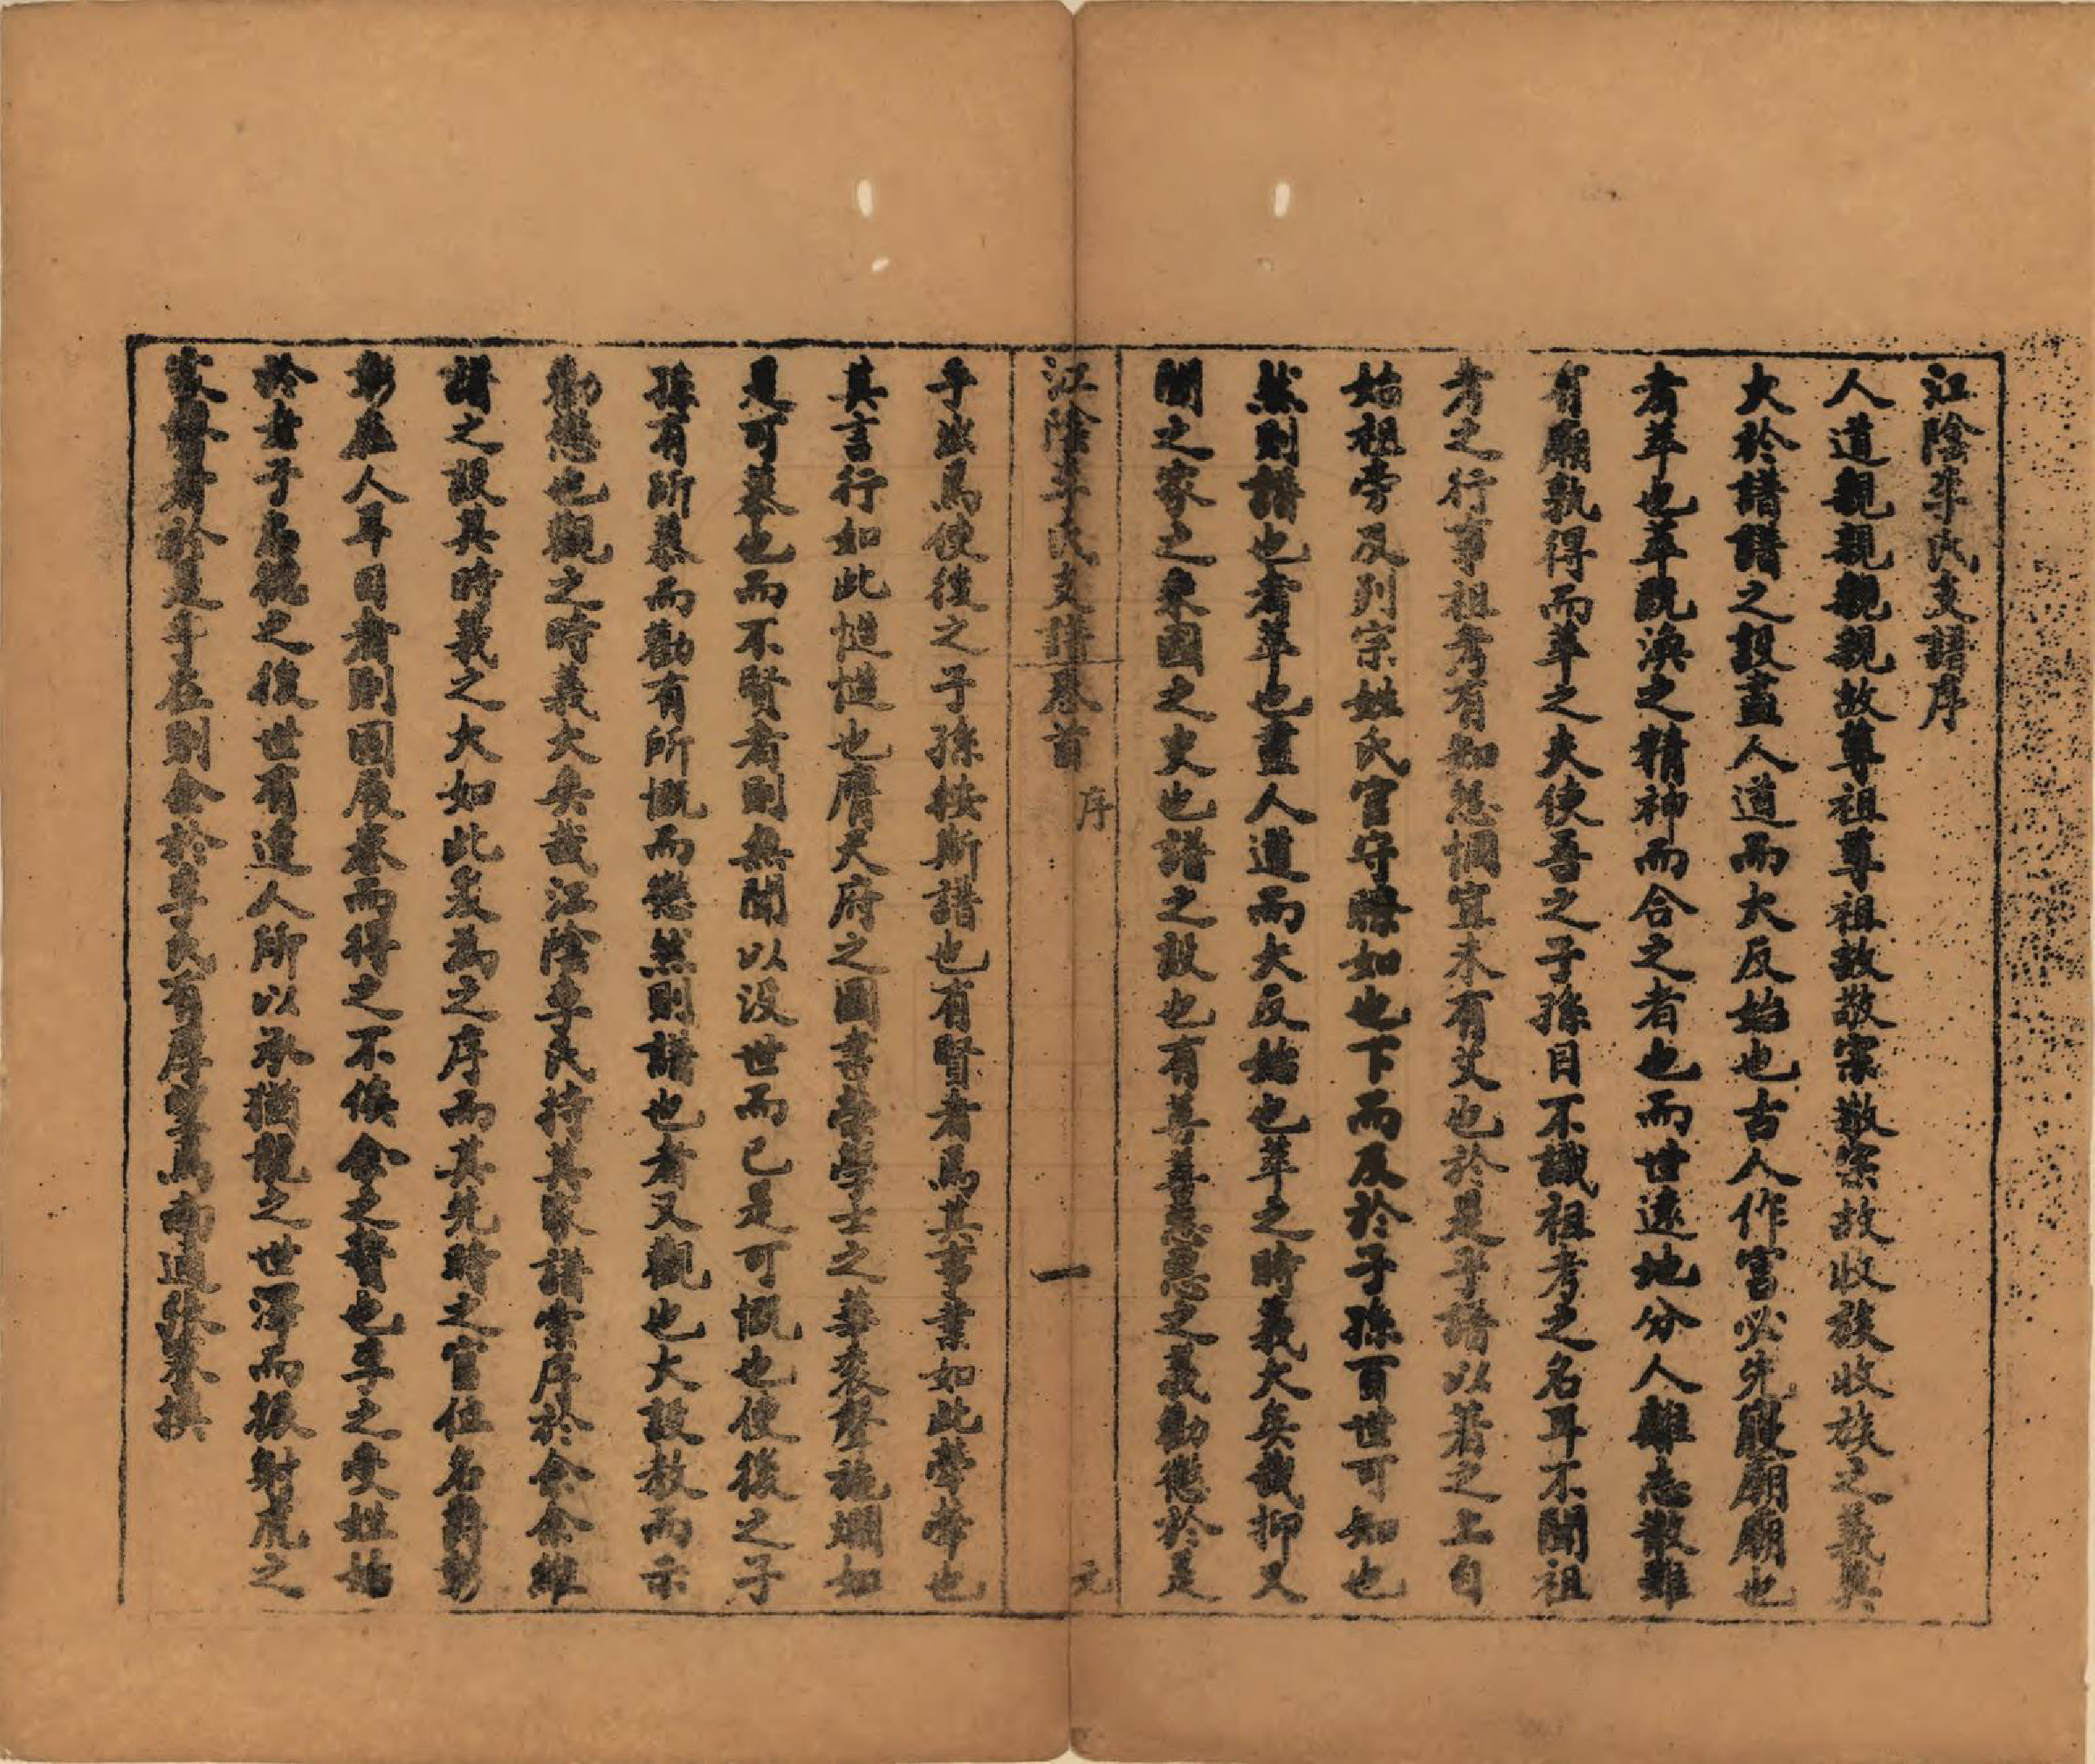 江陰李氏支譜序
人道親親親親故尊祖尊祖故敬宗敬宗故收族收族之義莫
大於譜譜之設盡人道而大反始也古人作室必先廟廟也
者萃也萃既渙之精神而合之者也而世遠地分人離志散雖
有廟孰得而萃之夫使吾之子孫目不識祖考之名耳不聞祖
考之行事祖考有知怨恫宜未有艾也於是乎譜以著之上自
始祖旁及列宗姓氏官守瞭如也下而及於子孫百世可知也
然則譜也者萃也盡人道而大反始也萃之時義大矣哉抑又
聞之家之乘國之史也譜之設也有善善惡惡之義勸懲於是
江陰李氏支譜卷首 序 一 元
乎出焉使後之子孫按斯譜也有賢者焉其事業如此犖犖也
其言行如此慥慥也膺天府之圖書當學士之華袞聲施爛如
是可慕也而不賢者則無聞以沒世而已是可慨也使後之子
孫有所慕而勸有所慨而懲然則譜也者又觀也大設教而示
勸懲也觀之時義大矣哉江陰李氏持其家譜索序於余余維
譜之設其時義之大如此爰為之序而其先時之官位名爵彰
彰在人耳目者則固展卷而得之不俟余之贅也李之受姓始
於老子老聃之後世有達人所以承猶龍之世澤而振射虎之
家聲者於是乎在則余於李氏有厚望焉南通張 撰